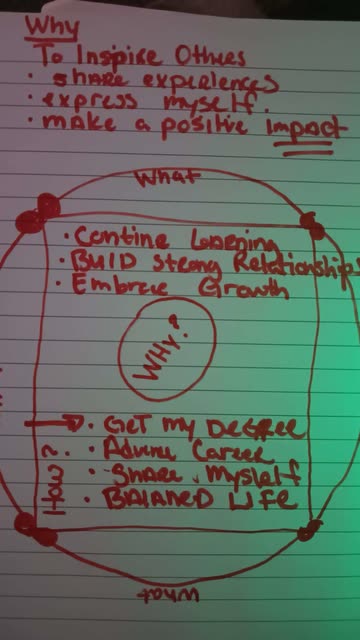 Why
To Inspire Others
· share experiences
· express myself.
· make a positive impact
What
· Contine Learning
· Build strong Relationships
· Embrace Growth
WHY?
· GET MY DEGREE
How?
· Share Myself
· BALANED LIFE
What